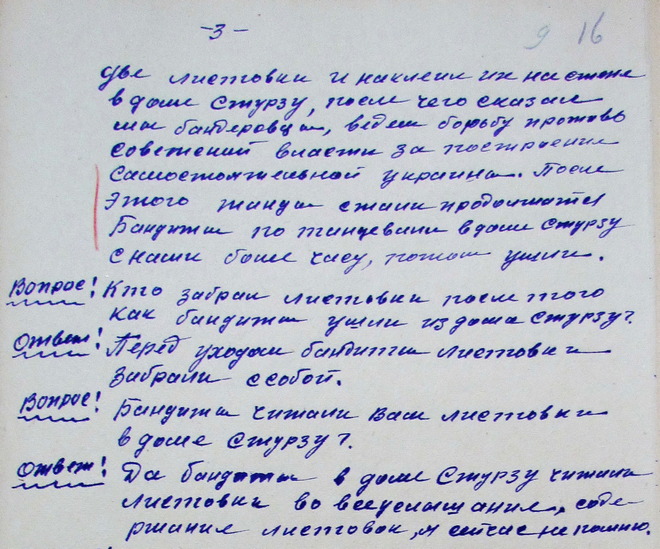 -3-
9 16
две листовки и наклеил их на стене
в доме Стурзу, после чего сказал
мы бандеровцы, ведем борьбу против
советской власти за построение
самостоятельной украины. После
этого танцы стали продолжатся
Бандиты по танцевали в доме Стурзу
с нами более часу, потом ушли.
Вопрос! Кто забрал листовки после того
как бандиты ушли из дома Стурзу?.
Ответ! Перед уходом бандиты листовки
забрали с собой.
Вопрос! Бандиты читали Вам листовки
в доме Стурзу?.
Ответ! Да бандиты в доме Стурзу читали
листовки во всеуслышание, соде-
ржание листовок, я сейчас не помню.